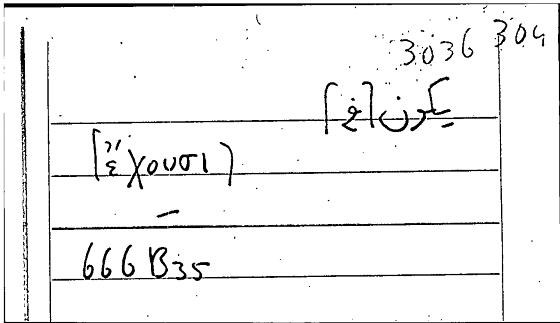 3036 304
يكون
[ἔχουσι)
–
666 B35